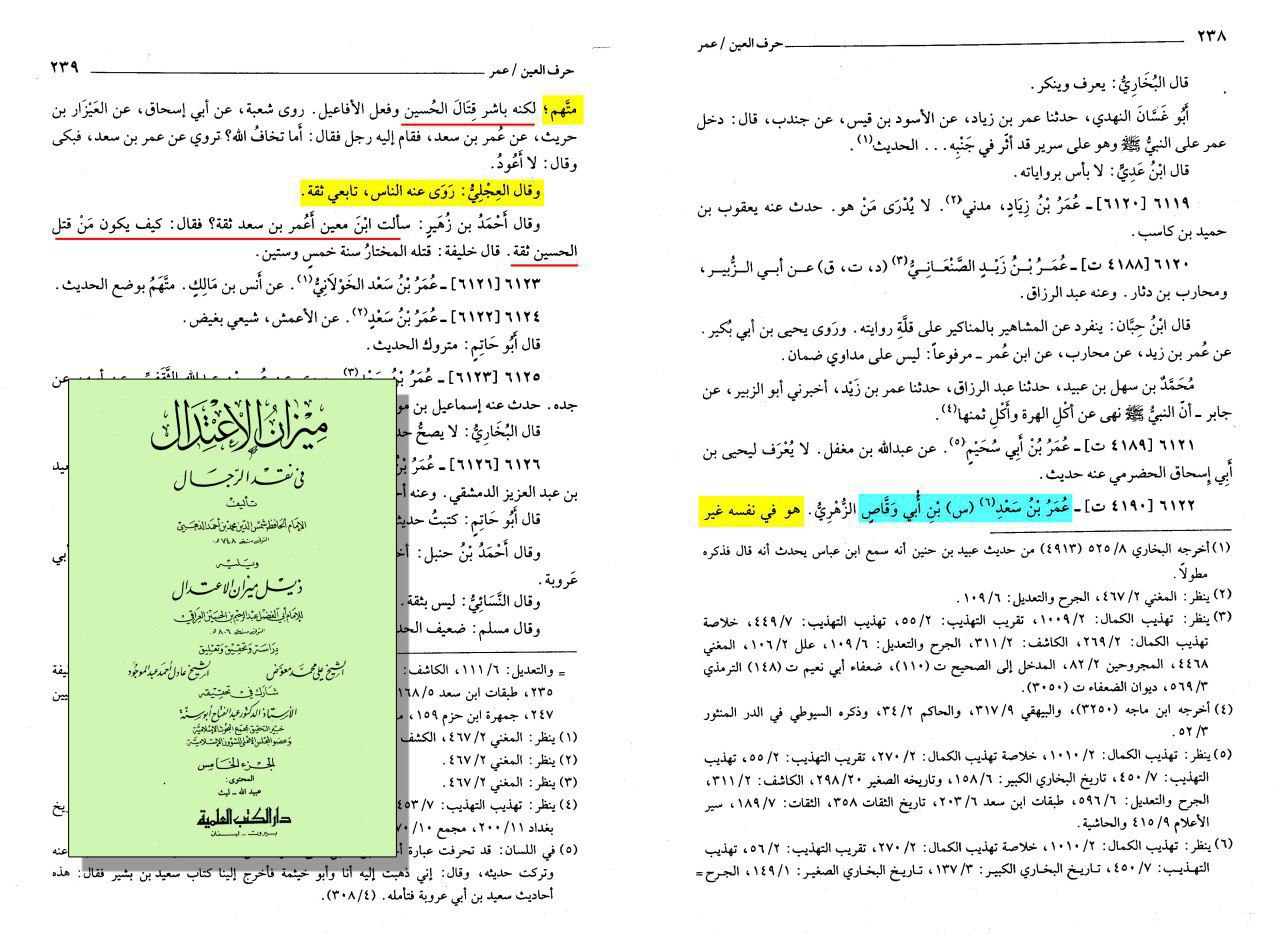 ٢٣٨
حرف العين / عمر
قال البُخَارِيُّ: يعرف وينكر.
أَبُو غَسَّانَ النهدي، حدثنا عمر بن زياد، عن الأسود بن قيس، عن جندب، قال: دخل
عمر على النبيُّ ﷺ وهو على سرير قد أثّر في جَنْبِه . . . الحديث(١).
قال ابْنُ عَدِيٍّ: لا بأس برواياته.
٦١١٩ [٦١٢٠] ـ عُمَرُ بْنُ زِيَادٍ، مدني(٢). لا يُدْرَى مَنْ هو. حدث عنه يعقوب بن
حميد بن كاسب.
٦١٢٠ [٤١٨٨ ت] ـ عُمَـرُ بْـنُ زَيْـدٍ الصَّنْعَـانِـيُّ(٣) (د، ت، ق) عـن أبـي الـزُّبيـر،
ومحارب بن دثار. وعنه عبد الرزاق.
قال ابْنُ حِبَّان: ينفرد عن المشاهير بالمناكير على قلَّةِ روايته. وَرَوى يحيى بن أبي بُكير.
عن عُمر بن زيد، عن محارب، عن ابن عُمر ـ مرفوعاً: ليس على مداوي ضمان.
مُحَمَّدٌ بن سهل بن عبيد، حدثنا عبد الرزاق، حدثنا عمر بن زَيْد، أخبرني أبو الزبير، عن
جابر ـ أنّ النبيَّ ﷺ نهى عن أكْلِ الهرة وأكْلِ ثمنها(٤).
٦١٢١ [٤١٨٩ ت] ـ عُمَرُ بْنُ أَبِي سُحَيْمٍ(٥). عن عبدالله بن مغفل. لا يُعْرَف ليحيى بن
أَبِي إِسحاق الحضرمي عنه حديث.
٦١٢٢ [٤١٩٠ ت] ـ عُمَرُ بْنُ سَعْدِ(٦) (س) بْنِ أَبي وَقَّاصٍ الزُّهْرِيُّ. هو في نفسه غير
(١) أخرجه البخاري ٥٢٥/٨ (٤٩١٣) من حديث عبيد بن حنين أنه سمع ابن عباس يحدث أنه قال فذكره
مطولاً.
(٢) ينظر: المغني ٤٦٧/٢، الجرح والتعديل: ١٠٩/٦.
(٣) ينظر: تهذيب الكمال: ١٠٠٩/٢، تقريب التهذيب: ٥٥/٢، تهذيب التهذيب: ٤٤٩/٧، خلاصة
تهذيب الكمال: ٢٦٩/٢، الكاشف: ٣١١/٢، الجرح والتعديل: ١٠٩/٦، علل ١٠٦/٢، المغني
٤٤٦٨، المجروحين ٨٢/٢، المدخل إلى الصحيح ت (١١٠)، ضعفاء أبي نعيم ت (١٤٨) الترمذي
٥٦٩/٣، ديوان الضعفاء ت (٣٠٥٠).
(٤) أخرجه ابن ماجه (٣٢٥٠)، والبيهقي ٣١٧/٩، والحاكم ٣٤/٢، وذكره السيوطي في الدر المنثور
٥٢/٣.
(٥) ينظر: تهذيب الكمال: ١٠١٠/٢، خلاصة تهذيب الكمال: ٢٧٠/٢، تقريب التهذيب: ٥٥/٢، تهذيب
التهذيب: ٤٥٠/٧، تاريخ البخاري الكبير: ١٥٨/٦، وتاريخه الصغير ٢٩٨/٢٠، الكاشف: ٣١١/٢،
الجرح والتعديل: ٥٩٦/٦، طبقات ابن سعد ٢٠٣/٦، تاريخ الثقات ٣٥٨، الثقات: ١٨٩/٧، سير
الأعلام ٤١٥/٩ والحاشية.
(٦) ينظر: تهذيب الكمال: ١٠١٠/٢، خلاصة تهذيب الكمال: ٢٧٠/٢، تقريب التهذيب: ٥٦/٢، تهذيب
التهـذيب: ٤٥٠/٧، تـاريخ البخـاري الكبيـر: ١٣٧/٣، تـاريخ البخـاري الصغيـر: ١٤٩/١، الجـرح =
حرف العين / عمر
٢٣٩
متَّهم؛ لكنه باشر قِتَالَ الحُسين وفعل الأفاعيل. روى شعبة، عن أبي إسحاق، عن العَيْزَار بن
حريث، عن عُمر بن سعد، فقام إليه رجل فقال: أَما تخافُ الله؟ تروي عن عمر بن سعد، فبكى
وقال: لا أَعُودُ.
وقال العِجْليُّ: رَوَى عنه الناس، تابعي ثقة.
وقال أَحْمَدُ بن زُهَيرٍ: سألت ابْنَ معين أَعُمر بن سعد ثقة؟ فقال: كيف يكون مَنْ قتل
الحسين ثقة. قال خليفة: قتله المختارُ سنة خمسٍ وستين.
٦١٢٣ [٦١٢١] ـ عُمَرُ بْنُ سَعْد الخَوْلاَنِيُّ(١). عن أنس بن مَالِكٍ. متَّهمُ بوضع الحديث.
٦١٢٤ [٦١٢٢] ـ عُمَرُ بْنُ سَعْدٍ(٢). عن الأعمش، شيعي بغيض.
قال أَبُو حَاتِمٍ: متروك الحديث.
٦١٢٥ [٦١٢٣] ـ عُمَرُ بْنُ
جده. حدث عنه إسماعيل بن
قال البُخَارِيُّ: لا يصحُّ
٦١٢٦ [٦١٢٦] ـ عُمَرُ
بن عبد العزيز الدمشقي. وعنه
قال أَبُو حَاتِمٍ: كتبتُ
وقال أَحْمَدُ بْنُ حنبل:
عَروبة.
وقال النَّسَائِيُّ: ليس بثقة.
وقال مسلم: ضعيف
= والتعديل: ١١١/٦، الكاشف:
٢٣٥، طبقات ابن سعد ١٦٨/٥
٢٤٧، جمهرة ابن حزم ١٥٩،
(١) ينظر: المغني ٤٦٧/٢، الكشف
(٢) ينظر: المغني ٤٦٧/٢.
(٣) ينظر: المغني ٤٦٧/٢.
(٤) ينظر: تهذيب التهذيب: ٤٥٣/٧،
بغداد ٢٠٠/١١، مجمع
(٥) في اللسان: قد تحرفت عبارة
وتركت حديثه، وقال: إني ذهبت إليه أنا وأبو خيثمة فأخرج إلينا كتاب سعيد بن بشير فقال: هذه
أحاديث سعيد بن أبي عروبة فتأمله. (٣٠٨/٤).
ميزان الاعتدال
في نقد الرجال
تأليف
الإمام الحافظ شمس الدين محمد بن أحمد الذهبي
المتوفى سنة ٧٤٨ هـ
ويليه
ذيل ميزان الاعتدال
للإمام أبي الفضل عبد الرحيم بن الحسين العراقي
المتوفى سنة ٨٠٦ هـ
دراسة وتحقيق وتعليق
الشيخ علي محمد معوض الشيخ عادل أحمد عبد الموجود
شارك في تحقيقه
الأستاذ الدكتور عبد الفتاح أبو سنة
خبير التحقيق بمجمع البحوث الإسلامية
وعضو المجلس الأعلى للشؤون الإسلامية
الجزء الخامس
المحتوى:
عبيد الله ـ ليث
دار الكتب العلمية
بيروت ـ لبنان